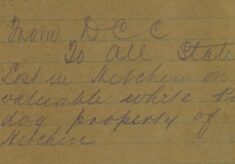 From D C C
To All State
Lost in Hitchin on
valuable white
dog property of
Hitchin